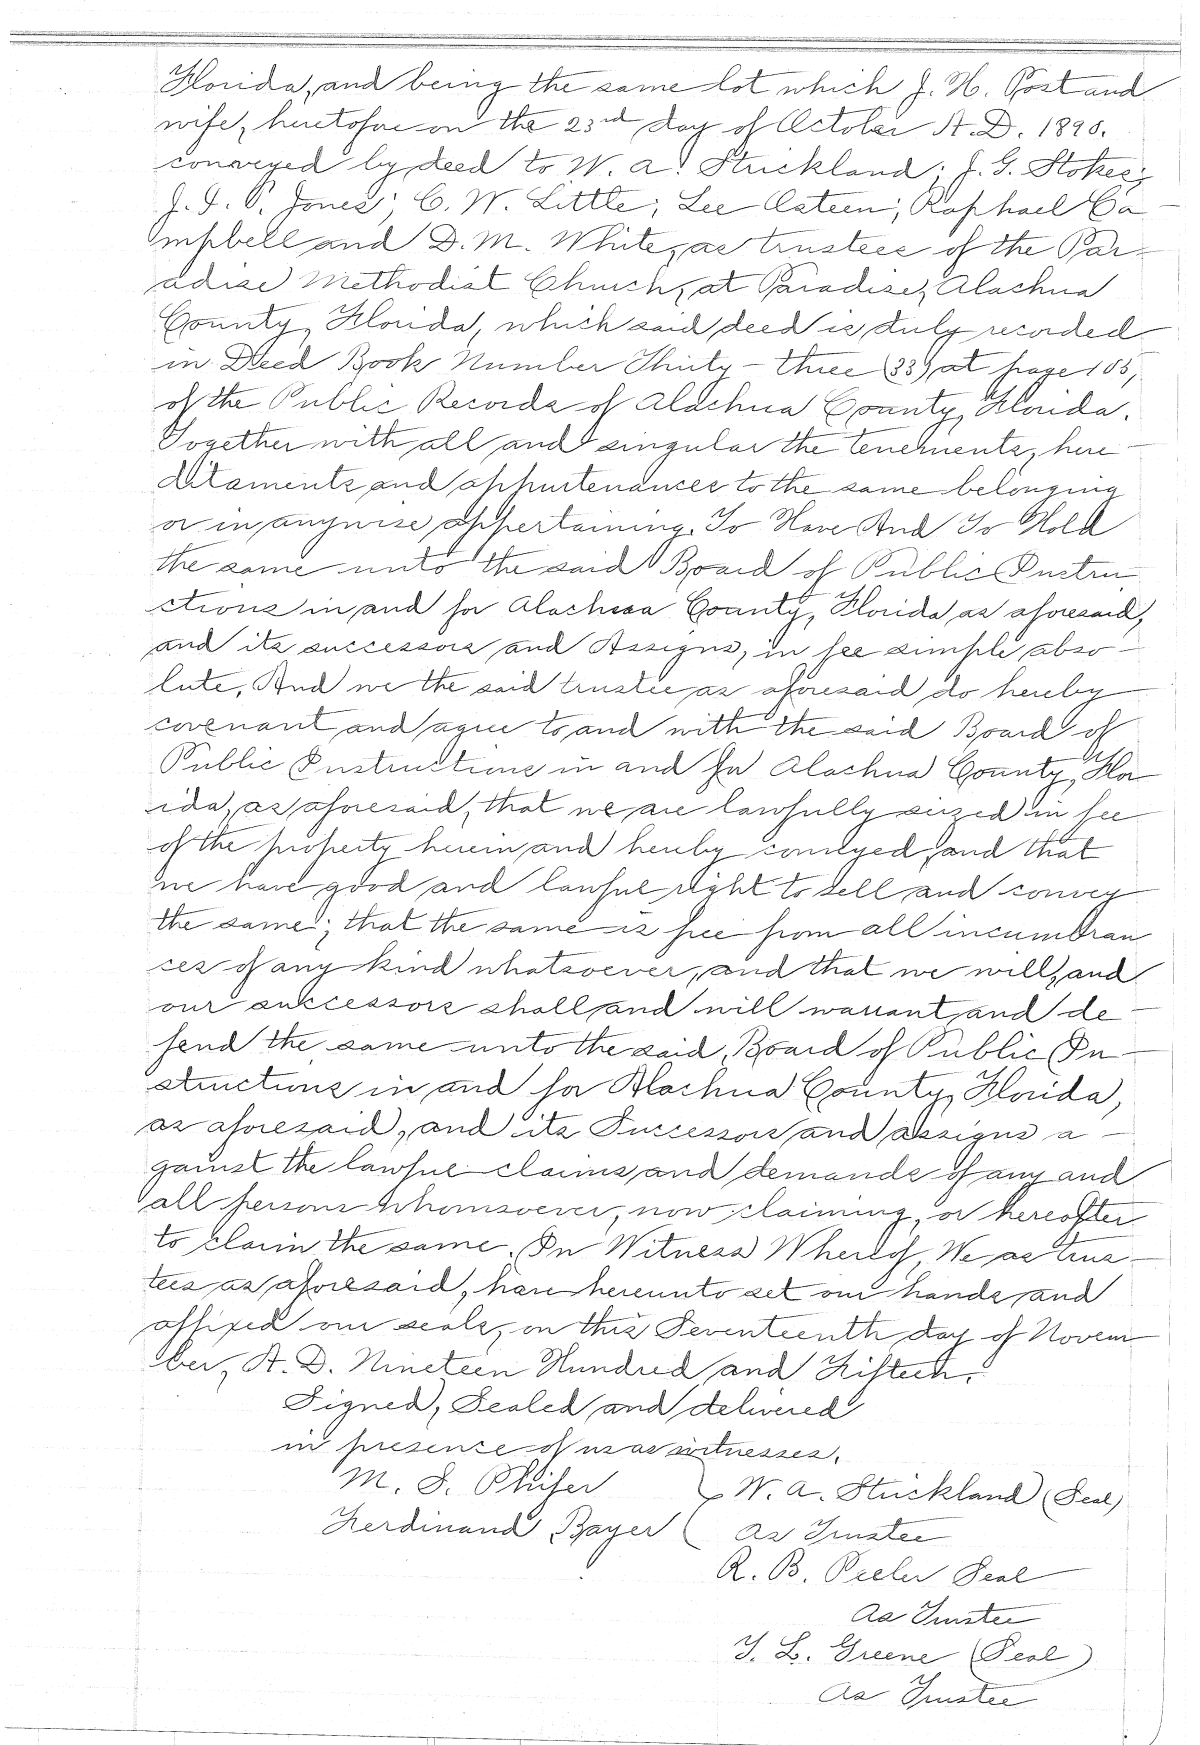 Florida, and being the same lot which J. H. Post and
wife, heretofore on the 23rd day of October A. D. 1890.
conveyed by deed to W. A. Strickland; J. G. Stokes;
J. I. P. Jones; C. W. Little; Lee Osteen; Raphael Ca
mpbell and D. M. White, as trustees of the Par-
adise Methodist Church, at Paradise, Alachua
County, Florida, which said deed is duly recorded
in Deed Book Number Thirty-three (33) at page 105,
of the Public Records of Alachua County, Florida.
Together with all and singular the tenements, here-
ditaments and appurtenances to the same belonging
or in anywise appertaining. To Have And To Hold
the same unto the said Board of Public Instru
ctions in and for Alachua County, Florida as aforesaid,
and its successors and Assigns, in fee simple abso-
lute. And we the said trustee as aforesaid do hereby
covenant and agree to and with the said Board of
Public Instructions in and for Alachua County, Flor
ida, as aforesaid, that we are lawfully seized in fee
of the property herein and hereby conveyed, and that
we have good and lawful right to sell and convey
the same; that the same is free from all incumbran
ces of any kind whatsoever, and that we will, and
our successors shall and will warrant and de-
fend the same unto the said, Board of Public In-
structions in and for Alachua County, Florida,
as aforesaid, and its Successors and assigns a-
gainst the lawful claims and demands of any and
all persons whomsoever, now claiming, or hereafter
to claim the same. In Witness Whereof, We as trus-
tees as aforesaid, have hereunto set our hands and
affixed our seals, on this Seventeenth day of Novem
ber, A. D. Nineteen Hundred and Fifteen.
Signed, Sealed and delivered
in presence of us as witnesses.
M. S. Phifer } W. A. Strickland (Seal)
Ferdinand Bayer ( As Trustee
R. B. Peeler Seal
As Trustee
T. L. Greene (Seal)
As Trustee